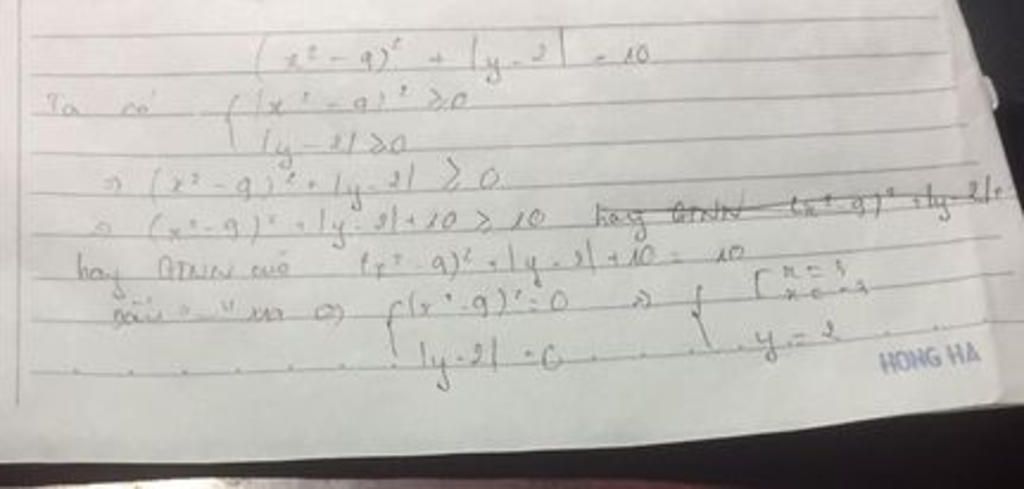 (x² - 9)² + |y - 2| - 10
Ta có { (x² - 9)² ≥ 0
|y - 2| ≥ 0
⇒ (x² - 9)² + |y - 2| ≥ 0
⇒ (x² - 9)² + |y - 2| + 10 ≥ 10 hay GTNN (x² - 9)² + |y - 2| +
hay GTNN của (x² - 9)² + |y - 2| + 10 = 10
Dấu "=" ⇔ { (x² - 9)² = 0 ⇒ { [ x = 3
x = -3
|y - 2| = 0 y = 2
HONG HA